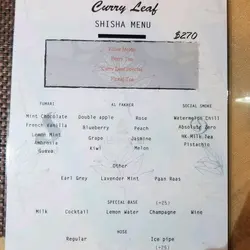 Curry Leaf
SHISHA MENU
$270
FUMARI AL FAKHER SOCIAL SMOKE
Mint Chocolate Double apple Rose Watermelon Chill
French Vanilla Blueberry Peach Absolute Zero
Lemon Mint Grape Jasmine HK Milk Tea
Ambrosia Kiwi Melon Pistachio
Guava
Other
Earl Grey Lavender Mint Paan Raas
SPECIAL BASE (+25)
Milk Cocktail Lemon Water Champagne Wine
HOSE
Regular Ice pipe